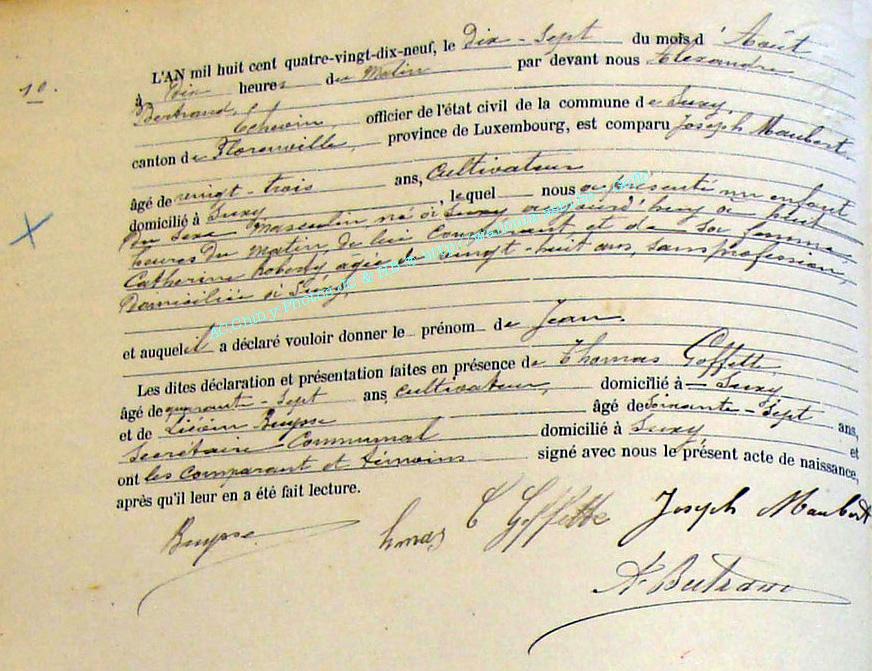 10.
L'AN mil huit cent quatre-vingt-dix-neuf, le Dix-Sept du mois d'Août
à Dix heures du Matin par devant nous Alexandre
Bertrand, Echevin, officier de l'état civil de la commune de Suxy,
canton de Florenville, province de Luxembourg, est comparu Joseph Maubert
âgé de vingt-trois ans, Cultivateur
domicilié à Suxy, lequel nous a présenté un enfant
du sexe masculin, né à Suxy aujourd'huy à huit
heures du matin, de lui Comparant et de sa femme
Catherine âgée de vingt-huit ans, sans profession,
Domiciliée à Suxy,
et auquel il a déclaré vouloir donner le prénom de Jean.
Les dites déclaration et présentation faites en présence de Thomas Goffette
âgé de quarante-sept ans, Cultivateur, domicilié à Suxy
et de Lucien Buysse âgé de Soixante-Sept ans,
Secrétaire Communal domicilié à Suxy et
ont les comparant et témoins signé avec nous le présent acte de naissance,
après qu'il leur en a été fait lecture.
Buysse T Goffette Joseph Maubert
hmas
A. Bertrand